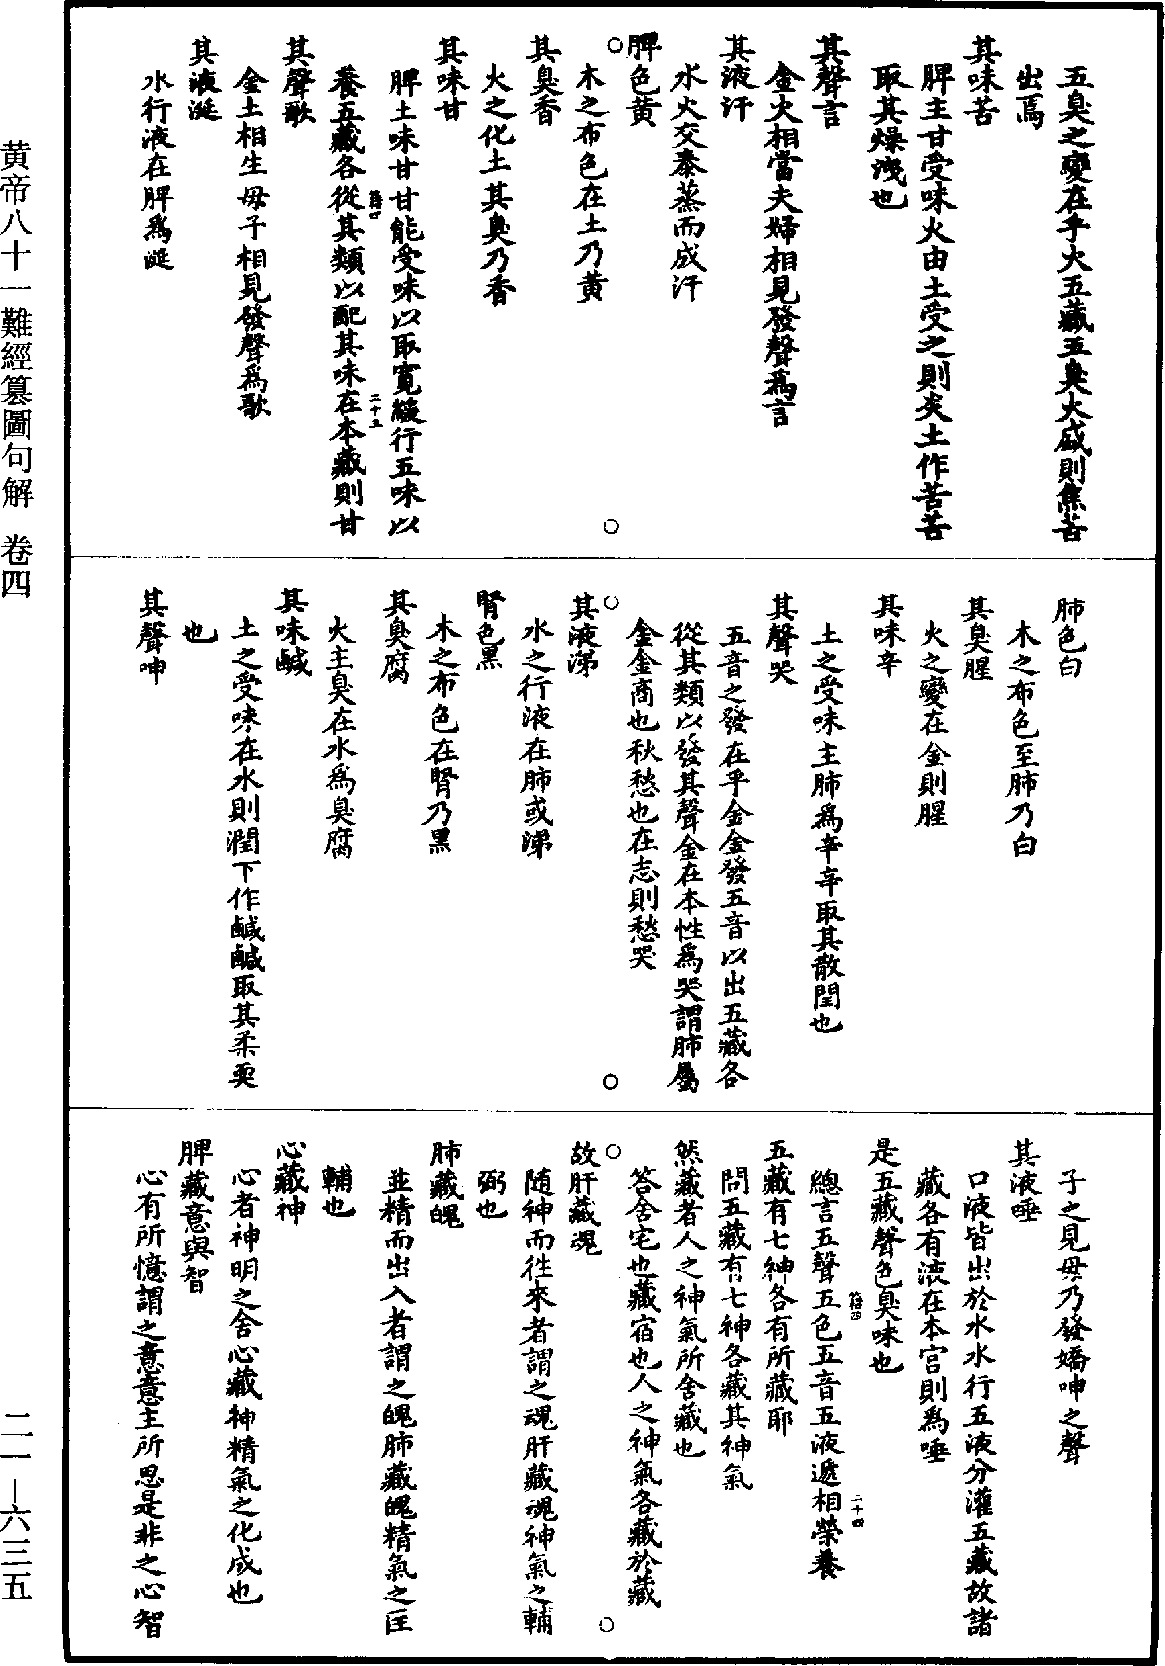 五臭之變在乎火五藏五臭火盛則焦苦
出焉
其味苦
脾主甘受味火由土受之則炎土作苦苦
取其燥洩也
其聲言
金火相當夫婦相見發聲爲言
其液汗
水火交泰蒸而成汗
脾色黄
木之布色在土乃黄
其臭香
火之化土其臭乃香
其味甘
脾土味甘甘能受味以取寛緩行五味以
養五藏各從其類以配其味在本藏則甘
其聲歌
金土相生母子相見發聲爲歌
其液涎
水行液在脾爲涎
肺色白
木之布色至肺乃白
其臭腥
火之變在金則腥
其味辛
土之受味主肺爲辛辛取其散閏也
其聲哭
五音之發在乎金金發五音以出五藏各
從其類以發其聲金在本性爲哭謂肺屬
金金商也秋愁也在志則愁哭
其液涕
水之行液在肺或涕
腎色黒
木之布色在腎乃黒
其臭腐
火主臭在水爲臭腐
其味鹹
土之受味在水則潤下作鹹鹹取其柔耎
也
其聲呻
子之見母乃發嬌呻之聲
其液唾
口液皆出於水水行五液分灌五藏故諸
藏各有液在本宫則爲唾
是五藏聲色臭味也
總言五聲五色五音五液遞相榮養
五藏有七神各有所藏耶
問五藏有七神各藏其神氣
然藏者人之神氣所舍藏也
答舍宅也藏宿也人之神氣各藏於藏
故肝藏魂
随神而徃來者謂之魂肝藏魂神氣之輔
弼也
肺藏魄
並精而出入者謂之魄肺藏魄精氣之匡
輔也
心藏神
心者神明之舍心藏神精氣之化成也
脾藏意與智
心有所憶謂之意意主所思是非之心智
符四
二十五
符四
二十四
黄帝八十一難經纂圖句解 卷四
二一—六三五